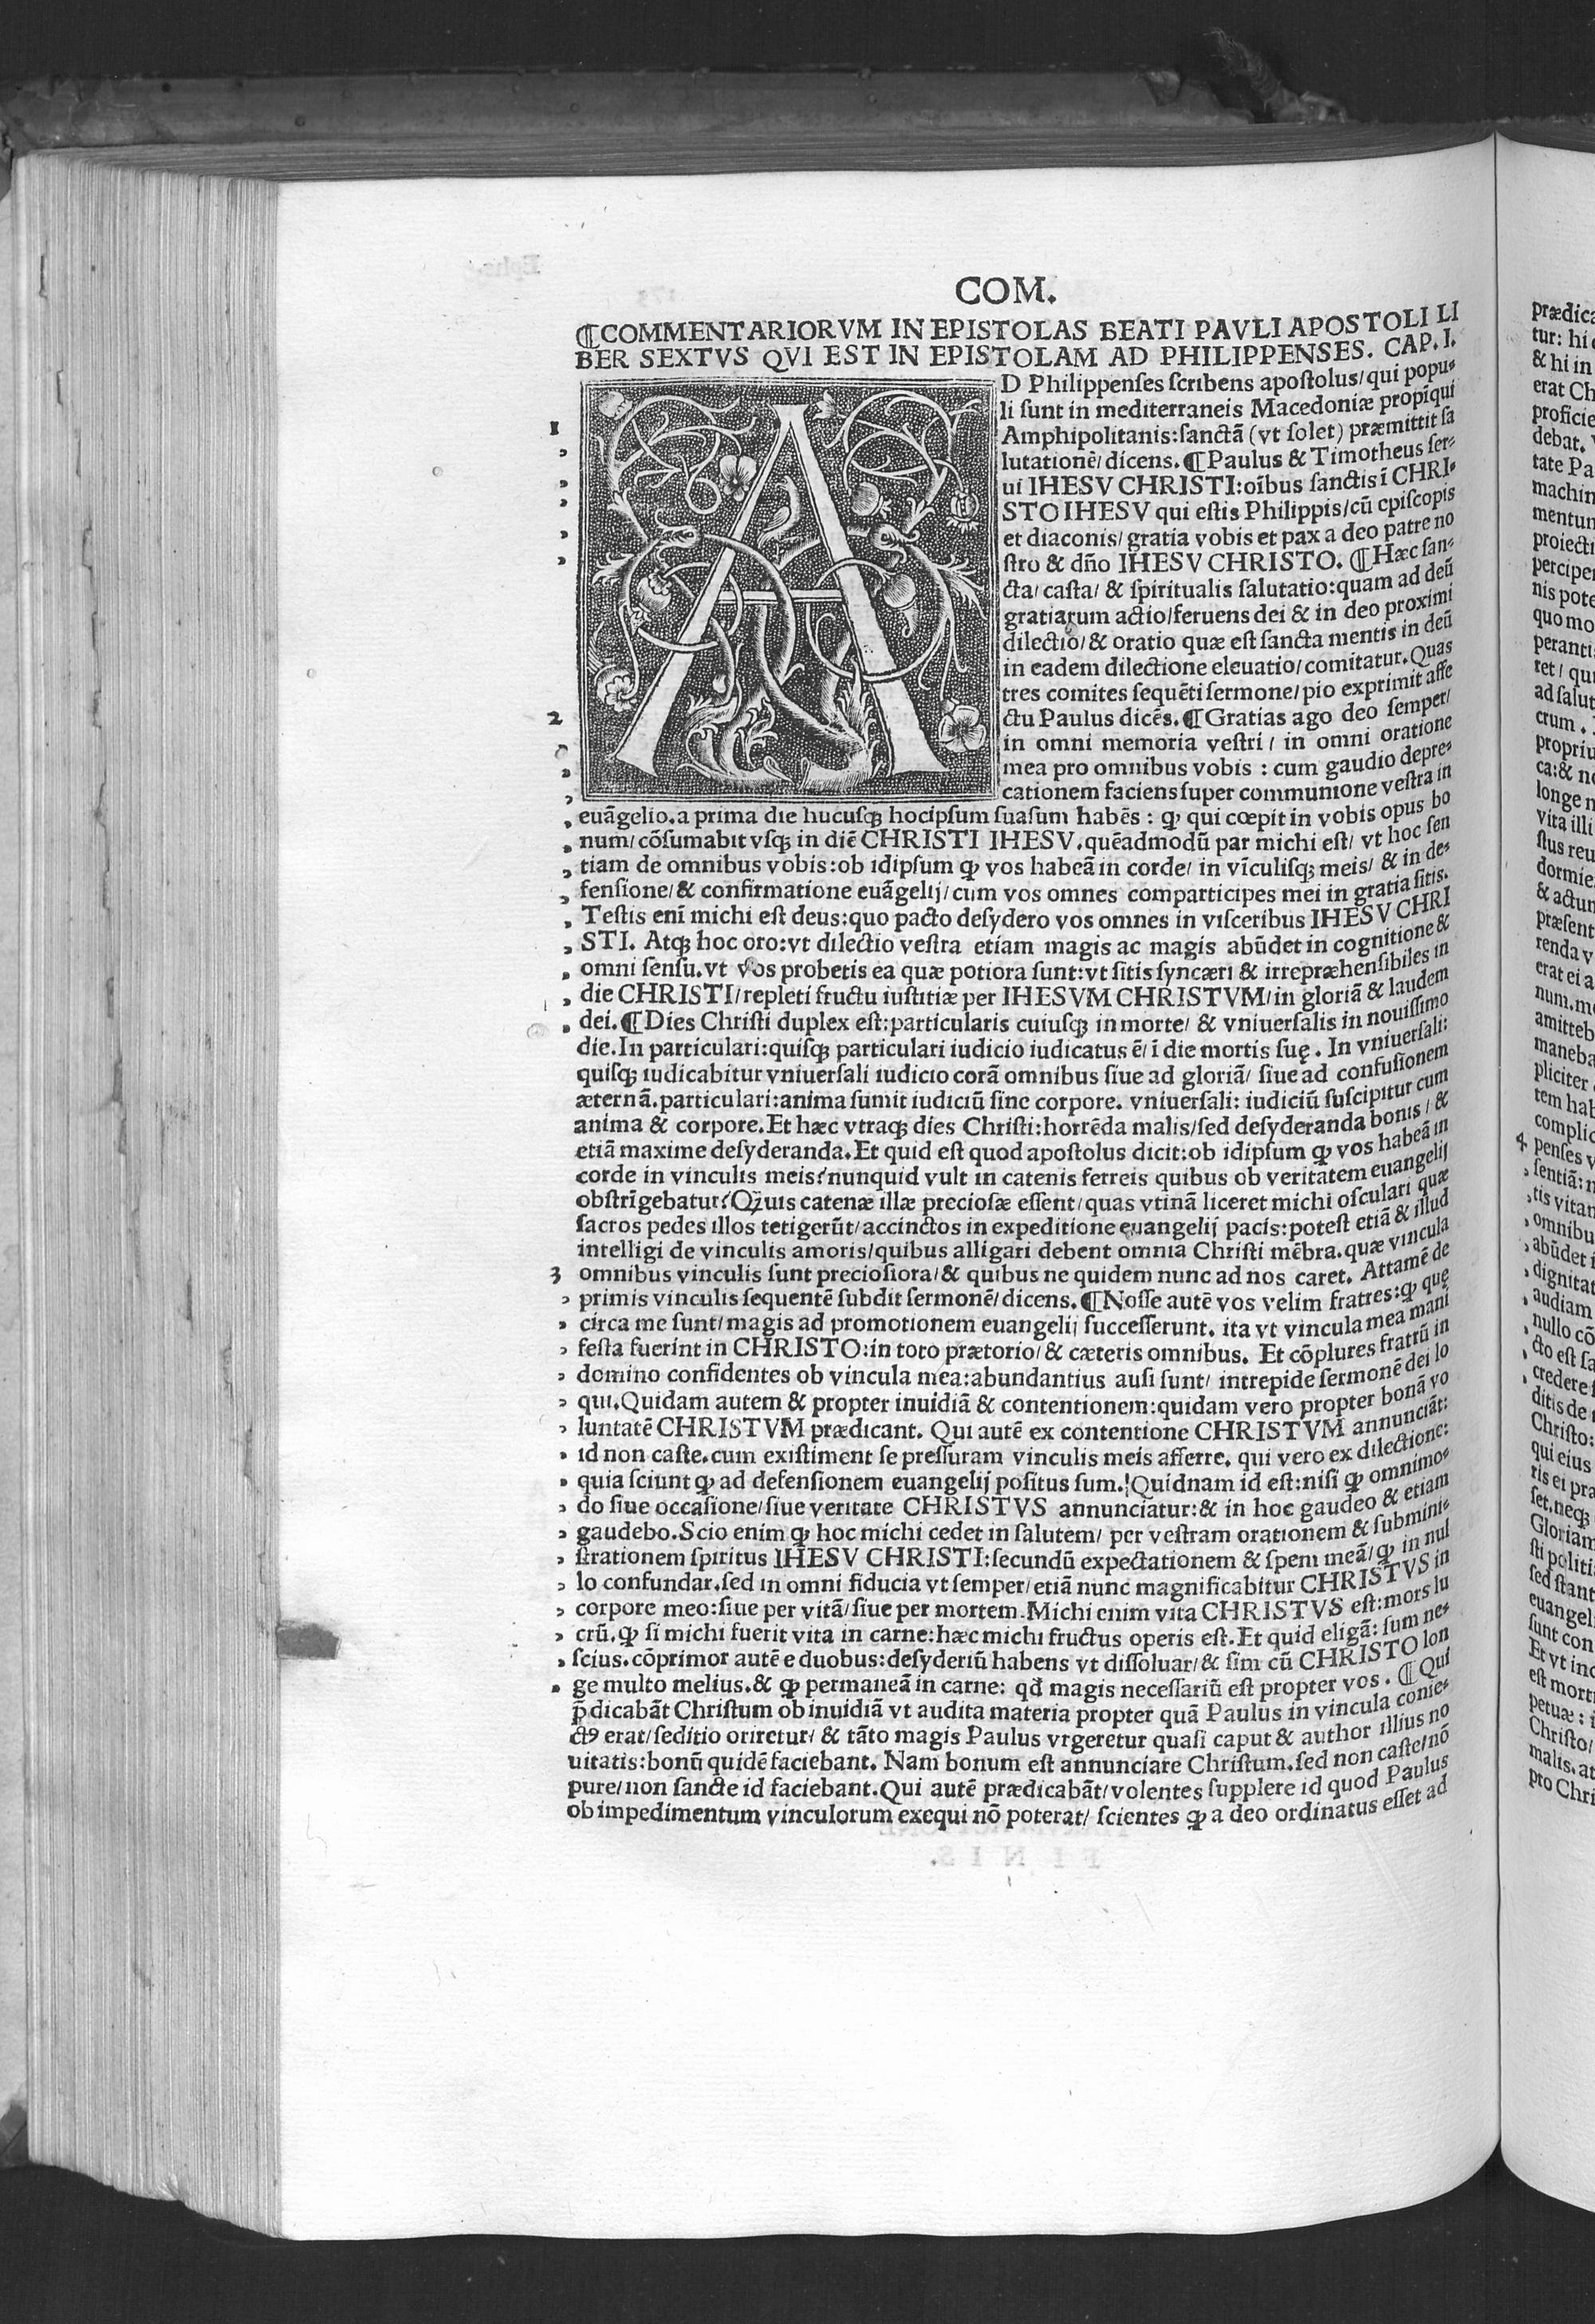 COM.
¶COMMENTARIORVM IN EPISTOLAS BEATI PAVLI APOSTOLI LI
BER SEXTVS QVI EST IN EPISTOLAM AD PHILIPPENSES. CAP. I.
AD Philippenses scribens apostolus/qui popu⸗
li sunt in mediterraneis Macedoniæ propīqui
1 Amphipolitanis:sanctā (vt solet) præmittit sa
lutationē/dicens.¶Paulus & Timotheus ser⸗
ui IHESV CHRISTI:oībus sanctis ī CHRI⸗
STO IHESV qui estis Philippis/cū episcopis
et diaconis/gratia vobis et pax a deo patre no
stro & dño IHESV CHRISTO. ¶Hæc san⸗
cta/casta/& spiritualis salutatio:quam ad deū
gratiarum actio/feruens dei & in deo proximi
dilectio/& oratio quæ est sancta mentis in deū
in eadem dilectione eleuatio/comitatur.Quas
tres comites sequēti sermone/pio exprimit affe
2 ctu Paulus dicēs.¶Gratias ago deo semper/
in omni memoria vestri/in omni oratione
mea pro omnibus vobis : cum gaudio depre⸗
cationem faciens super communione vestra in
euāgelio.a prima die hucusqꝫ hocipsum suasum habēs : ꝙ qui cœpit in vobis opus bo
num/cōsumabit vsqꝫ in diē CHRISTI IHESV.quēadmodū par michi est/vt hoc sen
tiam de omnibus vobis:ob idipsum ꝙ vos habeā in corde/in vīculisqꝫ meis/& in de⸗
fensione/& confirmatione euāgelij/cum vos omnes comparticipes mei in gratia sitis.
Testis enī michi est deus:quo pacto desydero vos omnes in visceribus IHESV CHRI
STI. Atqꝫ hoc oro:vt dilectio vestra etiam magis ac magis abūdet in cognitione &
omni sensu.vt vos probetis ea quæ potiora sunt:vt sitis syncæri & irrepræhensibiles in
die CHRISTI/repleti fructu iustitiæ per IHESVM CHRISTVM/in gloriā & laudem
dei.¶Dies Christi duplex est:particularis cuiusqꝫ in morte/& vniuersalis in nouissimo
die.In particulari:quisqꝫ particulari iudicio iudicatus ē/ī die mortis suę. In vniuersali:
quisqꝫ iudicabitur vniuersali iudicio corā omnibus siue ad gloriā/siue ad confusionem
æternā.particulari:anima sumit iudiciū sine corpore. vniuersali: iudiciū suscipitur cum
anima & corpore.Et hæc vtraqꝫ dies Christi:horrēda malis/sed desyderanda bonis/&
etiā maxime desyderanda.Et quid est quod apostolus dicit:ob idipsum ꝙ vos habeā in
corde in vinculis meis?nunquid vult in catenis ferreis quibus ob veritatem euangelij
obstrīgebatur?Qꝫuis catenæ illæ preciosæ essent/quas vtinā liceret michi osculari quæ
sacros pedes illos tetigerūt/accinctos in expeditione euangelij pacis:potest etiā & illud
intelligi de vinculis amoris/quibus alligari debent omnia Christi mēbra.quæ vincula
3 omnibus vinculis sunt preciosiora/& quibus ne quidem nunc ad nos caret. Attamē de
primis vinculis sequentē subdit sermonē/dicens.¶Nosse autē vos velim fratres:ꝙ quę
circa me sunt/magis ad promotionem euangelij successerunt. ita vt vincula mea mani
festa fuerint in CHRISTO:in toto prætorio/& cæteris omnibus. Et cōplures fratrū in
domino confidentes ob vincula mea:abundantius ausi sunt/intrepide sermonē dei lo
qui.Quidam autem & propter inuidiā & contentionem:quidam vero propter bonā vo
luntatē CHRISTVM prædicant. Qui autē ex contentione CHRISTVM annunciāt:
id non caste.cum existiment se pressuram vinculis meis afferre. qui vero ex dilectione:
quia sciunt ꝙ ad defensionem euangelij positus sum.¦Quidnam id est:nisi ꝙ omnimo⸗
do siue occasione/siue veritate CHRISTVS annunciatur:& in hoc gaudeo & etiam
gaudebo.Scio enim ꝙ hoc michi cedet in salutem/per vestram orationem & submini⸗
strationem spiritus IHESV CHRISTI:secundū expectationem & spem meā/ꝙ in nul
lo confundar.sed in omni fiducia vt semper/etiā nunc magnificabitur CHRISTVS in
corpore meo:siue per vitā/siue per mortem.Michi enim vita CHRISTVS est:mors lu
crū.ꝙ si michi fuerit vita in carne:hæc michi fructus operis est.Et quid eligā: sum nes⸗
scius.cōprimor autē e duobus:desyderiū habens vt dissoluar/& sim cū CHRISTO lon
ge multo melius.& ꝙ permaneā in carne: qd̄ magis necessariū est propter vos. ¶ Qui
p̄dicabāt Christum ob inuidiā vt audita materia propter quā Paulus in vincula conie⸗
ctꝰ erat/seditio oriretur/& tāto magis Paulus vrgeretur quasi caput & author illius no
uitatis:bonū quidē faciebant. Nam bonum est annunciare Christum.sed non caste/nō
pure/non sancte id faciebant.Qui autē prædicabāt/volentes supplere id quod Paulus
ob impedimentum vinculorum exequi nō poterat/scientes ꝙ a deo ordinatus esset ad